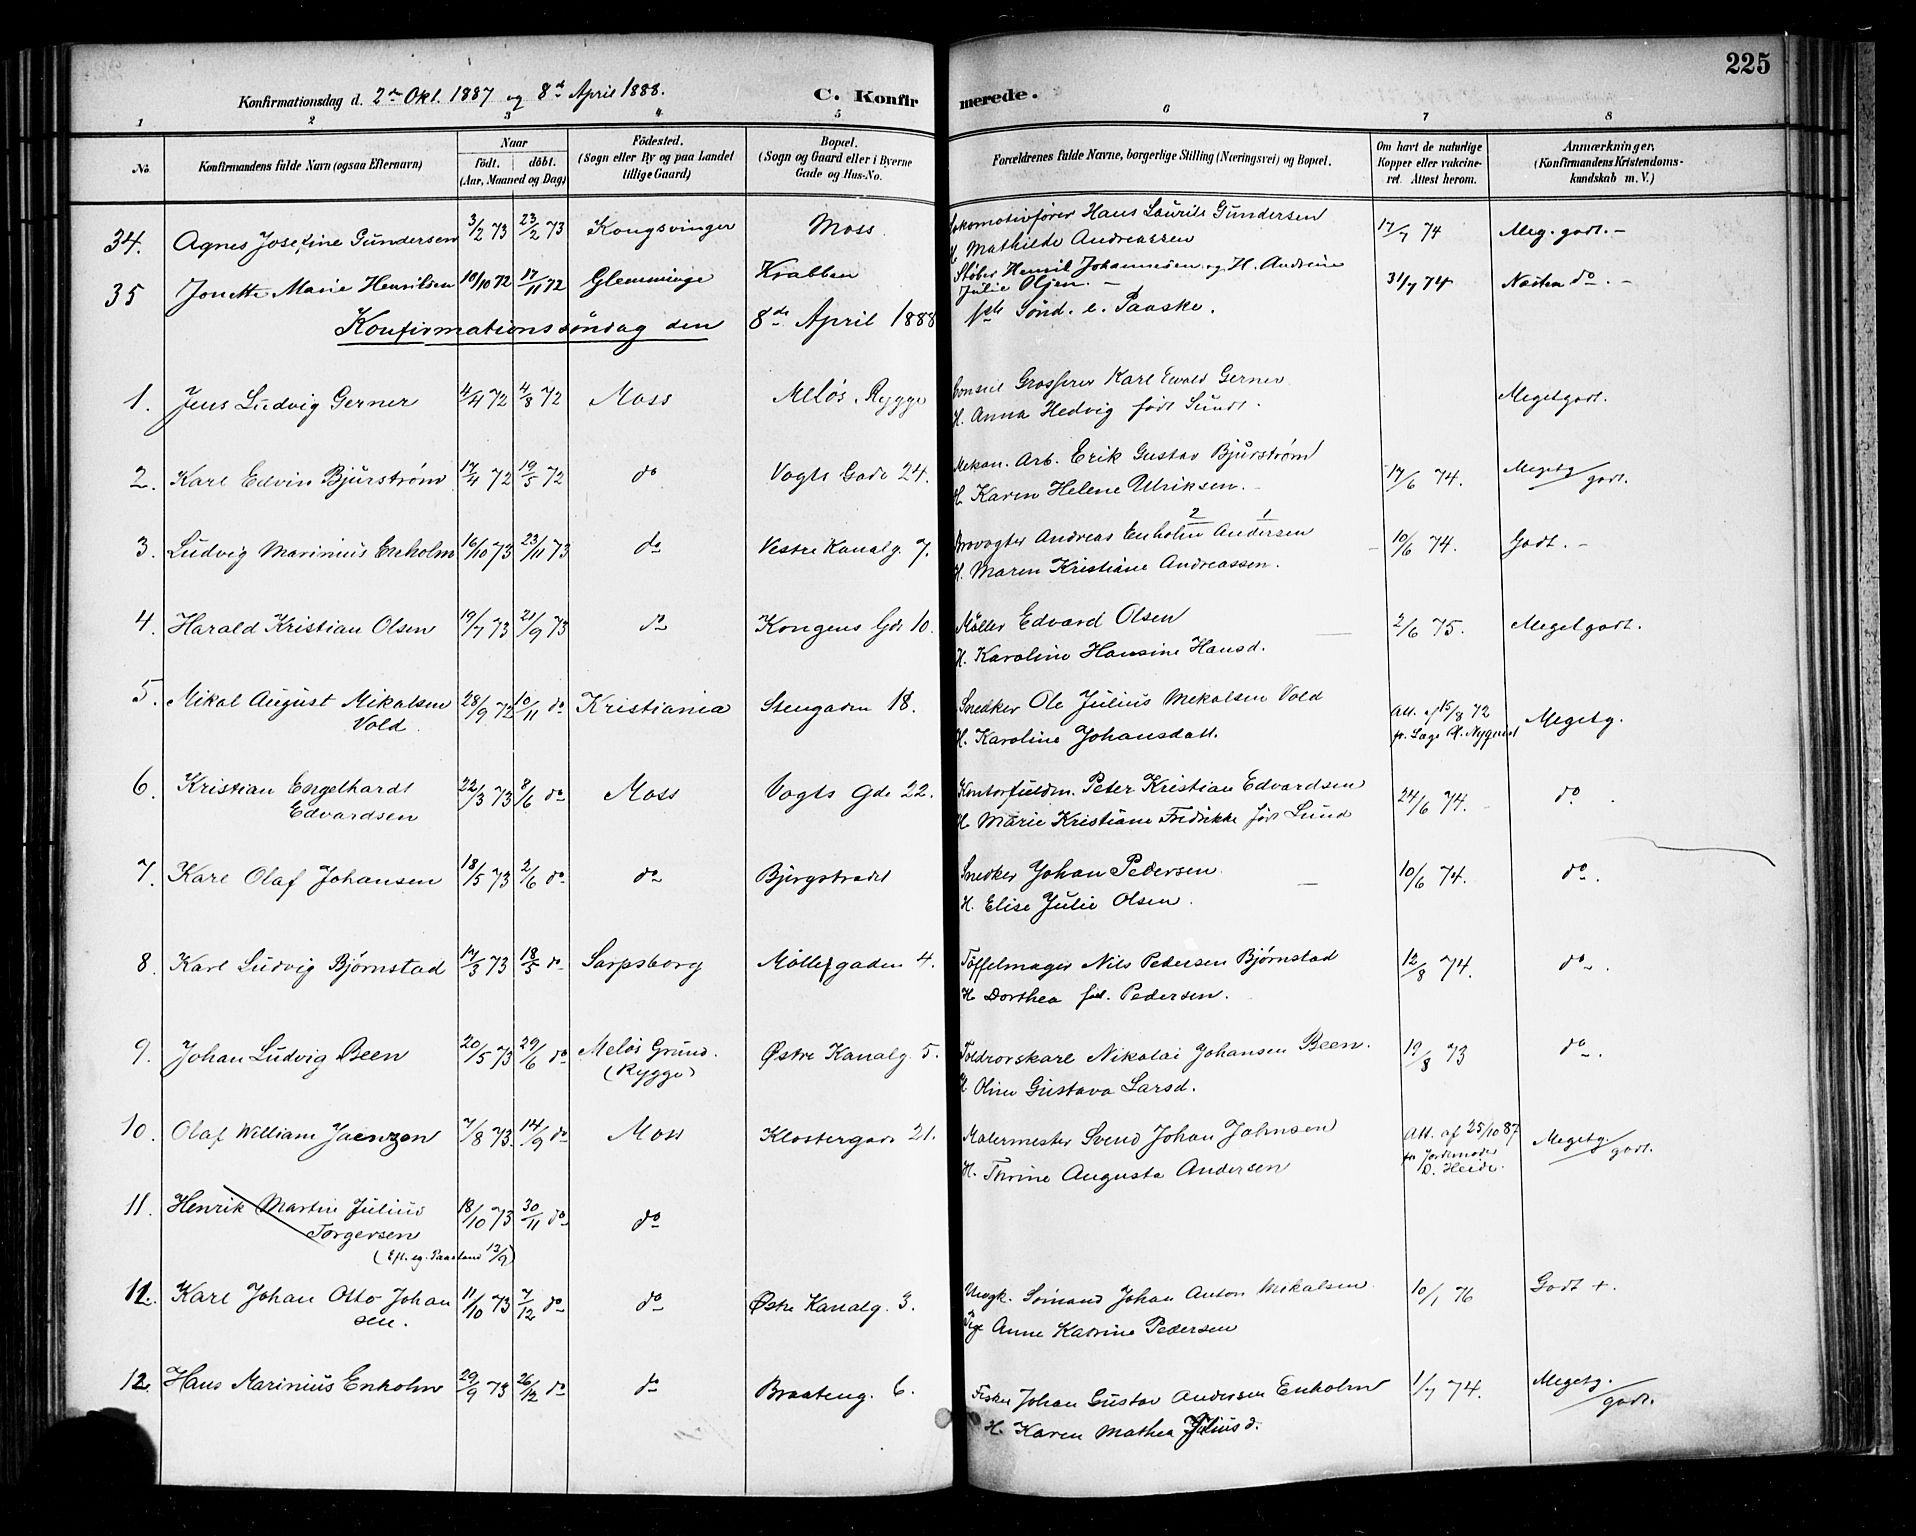 225
Konfirmationsdag d. 2den Okt. 1887 og 8de April 1888. C. Konfirmerede.
1 2 3 4 5 6 7 8
No. Konfirmandens fulde Navn (ogsaa Efternavn) Naar födt. döbt. (Aar, Maaned og Dag) Födested. (Sogn eller By og paa Landet tillige Gaard) Bopæl. (Sogn og Gaard eller i Byerne Gade og Hus-No. Forældrenes fulde Navne, borgerlige Stilling (Næringsvei) og Bopæl. Om havt de naturlige Kopper eller vakcineret. Attest herom. Anmærkninger. (Konfirmandens Kristendomskundskab m. V.)
34. Agnes Josefine Gundersen 3/2 73 23/2 73 Kongsvinger Moss Lokomotivfører Hans Laurits Gundersen 17/7 74 Meg. godt. -
H. Mathilde Andreassen
35 Jonette Marie Henriksen 10/10 72 17/11 72 Glemminge Krabben Støber Henrik Johannesen og H. Andrine 31/7 74 Næsten do. -
Julie Olsen. -
Konfirmationssöndag den 8de April 1888 1ste Sönd. e. Paaske.
1. Jens Ludvig Gerner 4/4 72 4/8 72 Moss Melös, Rygge Consul Grosserer Karl Ewald Gerner Megetgodt.
H. Anna Hedvig født Sundt.
2. Karl Edvin Bjurstrøm 17/4 72 19/5 72 do Vogts Gade 24. Mekan. Arb. Erik Gustav Bjurstrøm 17/6 74. Megetg/godt.
H. Karen Helene Ulriksen. -
3. Ludvig Marinius Enholm 16/10 73 23/11 73 do Vestre Kanalg. 7. Brovogter Andreas Enholm 2 Andersen 1 10/6 74. Godt. -
H. Maren Kristiane Andreassen.
4. Harald Kristian Olsen 19/7 73 21/9 73 do Kongens Gd. 10. Møller Edvard Olsen 2/6 75. Megetgodt.
H. Karoline Hansine Hansd.
5. Mikal August Mikalsen 28/9 72 10/11 do Kristiania Stengaden 18. Snedker Ole Julius Mekalsen Vold Att. af 15/8 72 Megetg.
Vold. H. Karoline Johansdatt. fr. Læge
6. Kristian Engelhardt 22/3 73 8/6 do Moss Vogts Gde 22. Kontorfuldm. Peter Kristian Edvardsen 24/6 74. do.
Edvardsen H. Marie Kristiane Fredrikke född Lund
7. Karl Olaf Johansen 18/5 73 2/6 do do Bjergstrædet Snedker Johan Pedersen 10/6 74. do.
H. Elise Julie Olsen.
8. Karl Ludvig Bjørnstad 17/3 73 18/5 do Sarpsborg Möllergaden 4. Töffelmager Nils Pedersen Bjørnstad 12/8 74. do.
H. Dorthea fød. Pedersen.
9. Johan Ludvig Been 20/5 73 29/6 do Melös Grund. Østre Kanalg. 5. Toldrorskarl Nikolai Johansen Been. 19/8 73 do.
(Rygge) H. Oline Gustava Larsd.
10. Olaf William Jaenzon 7/8 73. 14/9 do Moss Klostergade 21. Malermester Svend Johan Johnsen Att. af 25/10 87 Megetg./godt.
H. Thrine Augusta Andersen fr. Jordemoder D. Heide.
11. Henrik Martin Julius 18/10 73 30/11 do do
Torgersen
(Eft. eg. Paastand 12/9)
11. Karl Johan Otto Johan 11/10 73 7/12 do do Østre Kanalg. 3. Ungk. Sömand Johan Anton Mikalsen 10/1 76 Godt +.
sen. Pige Anne Katrine Pedersen
12. Hans Marinius Enholm 29/9 73 26/12 do do Braateng. 6. Fisker Johan Gustav Andersen Enholm 1/7 74. Megetg./godt.
H. Karen Mathea Juliusd.